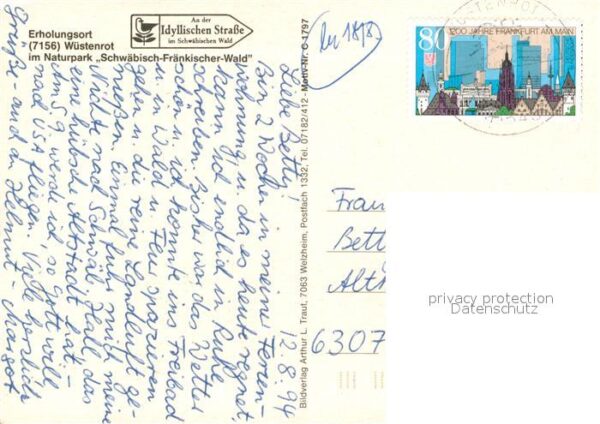 Erholungsort
(7156) Wüstenrot
im Naturpark „Schwäbisch-Fränkischer-Wald"
An der
Idyllischen Straße
im Schwäbischen Wald
Bildverlag Arthur L. Traut, 7063 Welzheim, Postfach 1332, Tel. 07182/412 - Motiv-Nr. C 1797
80
1200 JAHRE FRANKFURT AM MAIN
12.8.94
Liebe Betty!
Bin 2 Wochen in meiner Ferien-
wohnung u. da es heute regnet,
kann ich endlich in Ruhe
schreiben. Bisher war das Wetter
schön u. ich konnte ins Freibad
u. in Wald u. Feur spazieren
gehen u. die reine Landluft ge-
nießen. Einmal fuhr mich meine
Nichte nach Schwäb. Hall, das
eine hübsche Altstadt hat -
Am 5.9. werde ich so Gott will
nach USA fliegen. Viele herzlich
Grüße - auch an Helmut - Margot
Frau
Bett
Alt
6307
privacy protection
Datenschutz